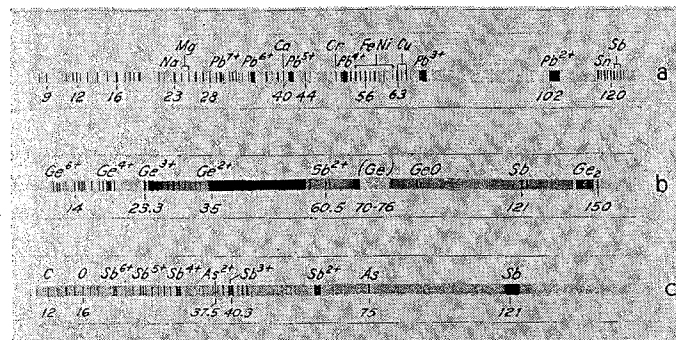 Mg Ca Cr Fe Ni Cu Sb
Na Pb7+ Pb6+ Pb5+ Pb4+ Pb3+ Pb2+ Sn
a
9 12 16 23 28 40 44 56 63 102 120
Ge6+ Ge4+ Ge3+ Ge2+ Sb2+ (Ge) GeO Sb Ge2
b
14 23.3 35 60.5 70-76 121 150
C O Sb6+ Sb5+ Sb4+ As2+ Sb3+ Sb2+ As Sb
c
12 16 37.5 40.3 75 121